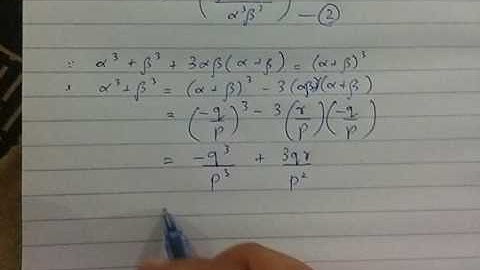 α³β³ —②
∵ α³ + β³ + 3αβ(α+β) = (α+β)³
∴ α³+β³ = (α+β)³ − 3(αβ)(α+β)
= (-q/p)³ − 3(r/p)(-q/p)
= -q³/p³ + 3qr/p²